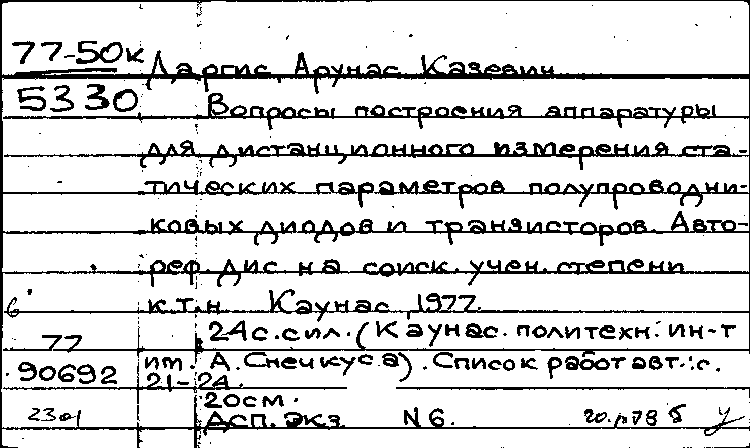 77-50к Даргис, Арунас Казевич
5330 Вопросы построения аппаратуры
для дистанционного измерения ста-
тических параметров полупроводни-
ковых диодов и транзисторов. Авто-
реф. дис. на соиск. учен. степени
к.т.н. Каунас, 1977.
77 24с. с ил. (Каунас. политехн. ин-т
90692 им. А. Снечкуса). Список работ авт.: с.
21-24.
20см.
2301 Дсп. экз. N6.